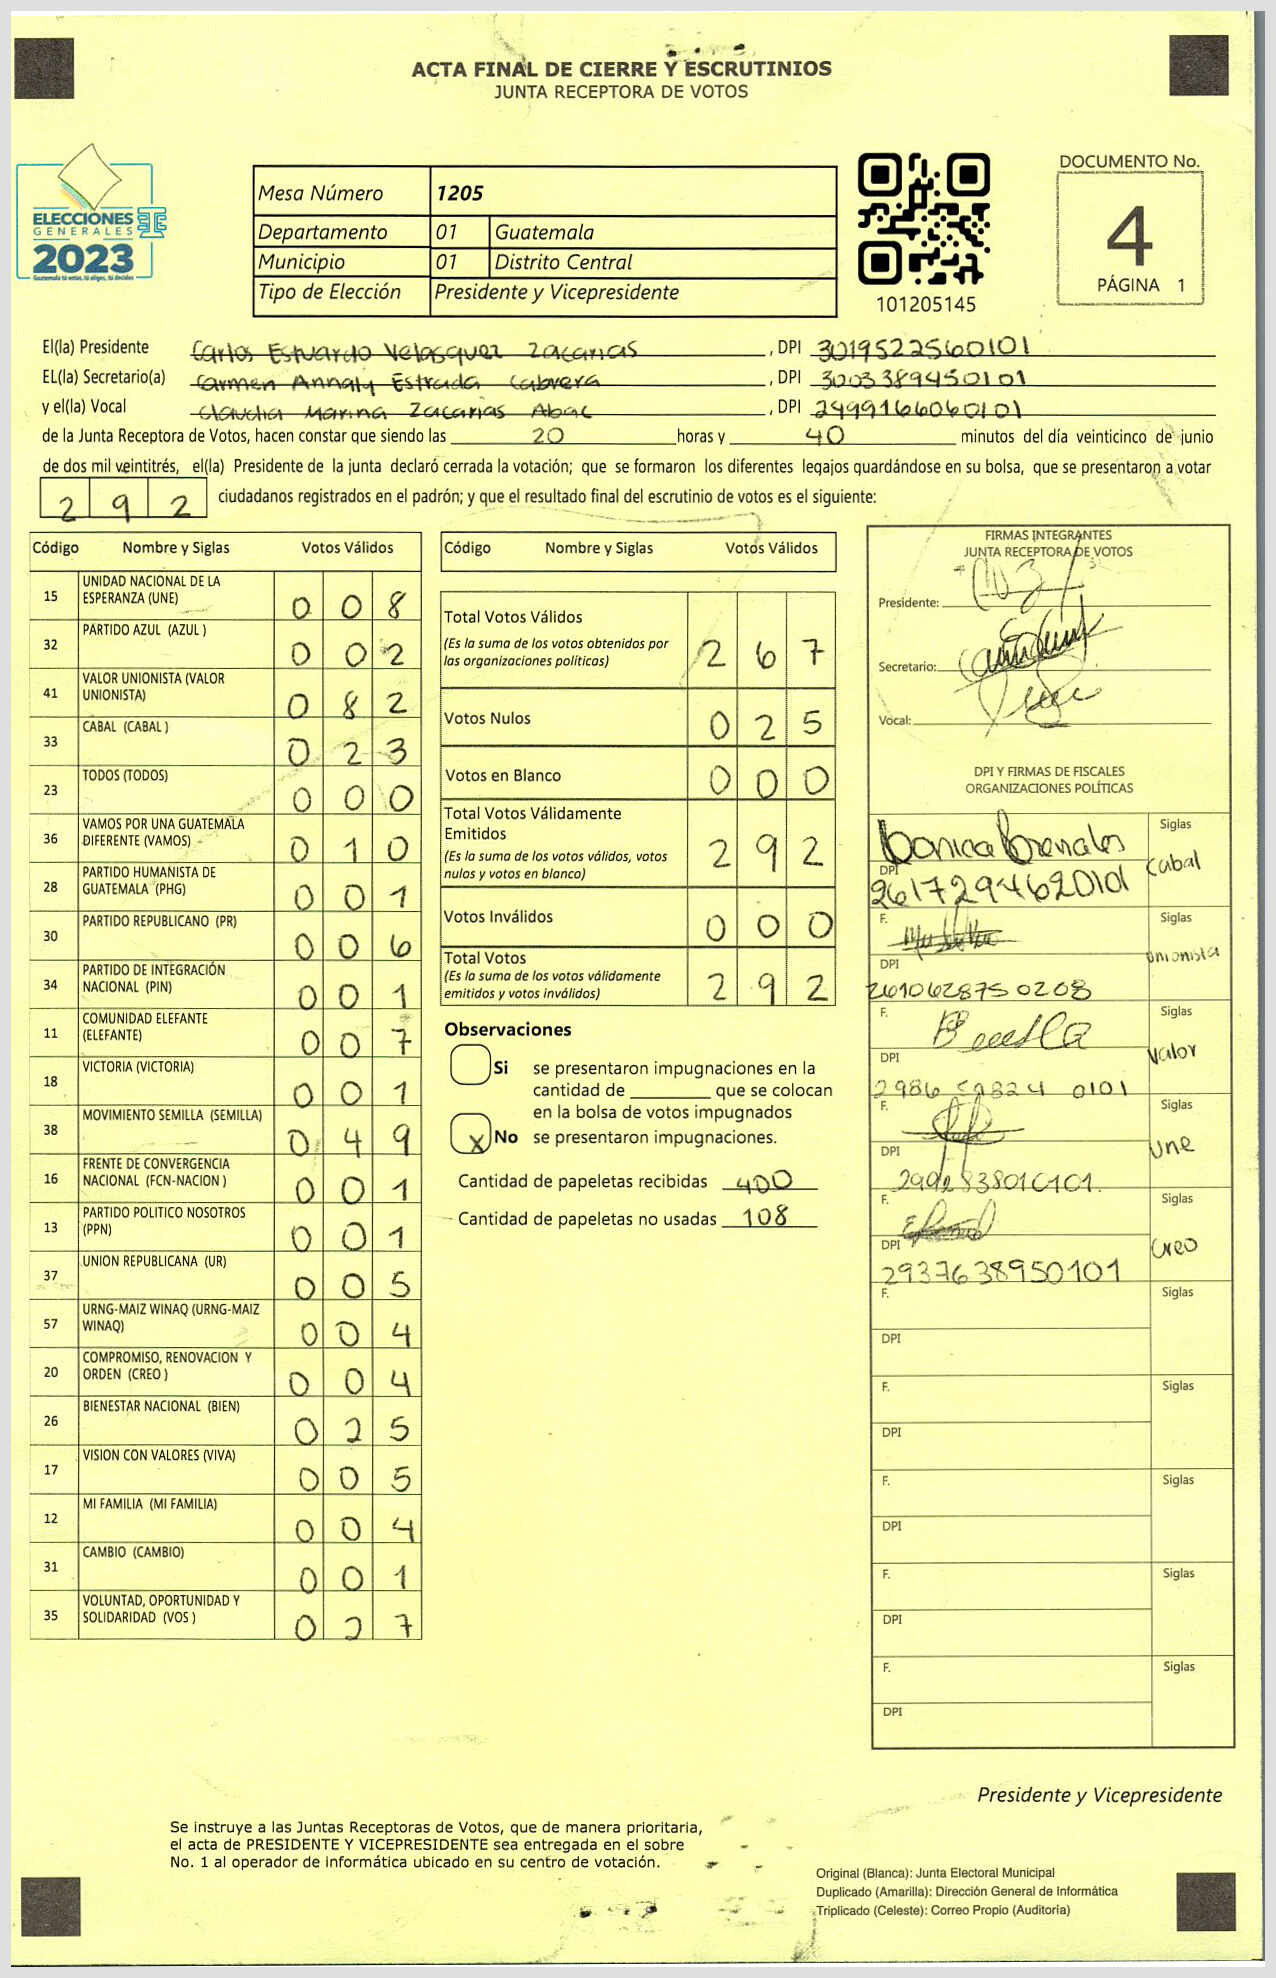 ACTA FINAL DE CIERRE Y ESCRUTINIOS
JUNTA RECEPTORA DE VOTOS
ELECCIONES
GENERALES
2023
Guatemala tú votas, tú eliges, tú decides
Mesa Número 1205
Departamento 01 Guatemala
Municipio 01 Distrito Central
Tipo de Elección Presidente y Vicepresidente
101205145
DOCUMENTO No.
4
PÁGINA 1
El(la) Presidente Carlos Estuardo Velasquez Zacarias, DPI 3019522560101
EL(la) Secretario(a) Carmen Annaly Estrada Cabrera, DPI 3003389450101
y el(la) Vocal Claudia Marina Zacarias Abac, DPI 2499166060101
de la Junta Receptora de Votos, hacen constar que siendo las 20 horas y 40 minutos del día veinticinco de junio
de dos mil veintitrés, el(la) Presidente de la junta declaró cerrada la votación; que se formaron los diferentes legajos guardándose en su bolsa, que se presentaron a votar
292 ciudadanos registrados en el padrón; y que el resultado final del escrutinio de votos es el siguiente:
Código Nombre y Siglas Votos Válidos
15 UNIDAD NACIONAL DE LA ESPERANZA (UNE) 008
32 PARTIDO AZUL (AZUL ) 002
41 VALOR UNIONISTA (VALOR UNIONISTA) 082
33 CABAL (CABAL ) 023
23 TODOS (TODOS) 000
36 VAMOS POR UNA GUATEMALA DIFERENTE (VAMOS) 010
28 PARTIDO HUMANISTA DE GUATEMALA (PHG) 001
30 PARTIDO REPUBLICANO (PR) 006
34 PARTIDO DE INTEGRACIÓN NACIONAL (PIN) 001
11 COMUNIDAD ELEFANTE (ELEFANTE) 007
18 VICTORIA (VICTORIA) 001
38 MOVIMIENTO SEMILLA (SEMILLA) 049
16 FRENTE DE CONVERGENCIA NACIONAL (FCN-NACION ) 001
13 PARTIDO POLITICO NOSOTROS (PPN) 001
37 UNION REPUBLICANA (UR) 005
57 URNG-MAIZ WINAQ (URNG-MAIZ WINAQ) 004
20 COMPROMISO, RENOVACION Y ORDEN (CREO ) 004
26 BIENESTAR NACIONAL (BIEN) 025
17 VISION CON VALORES (VIVA) 005
12 MI FAMILIA (MI FAMILIA) 004
31 CAMBIO (CAMBIO) 001
35 VOLUNTAD, OPORTUNIDAD Y SOLIDARIDAD (VOS ) 027
Código Nombre y Siglas Votos Válidos
Total Votos Válidos 267
(Es la suma de los votos obtenidos por
las organizaciones politicas)
Votos Nulos 025
Votos en Blanco 000
Total Votos Válidamente
Emitidos 292
(Es la suma de los votos válidos, votos
nulos y votos en blanco)
Votos Inválidos 000
Total Votos 292
(Es la suma de los votos válidamente
emitidos y votos inválidos)
Observaciones
Si se presentaron impugnaciones en la
cantidad de ________ que se colocan
en la bolsa de votos impugnados
X No se presentaron impugnaciones.
Cantidad de papeletas recibidas 400
Cantidad de papeletas no usadas 108
FIRMAS INTEGRANTES
JUNTA RECEPTORA DE VOTOS
Presidente:
Secretario:
Vocal:
DPI Y FIRMAS DE FISCALES
ORGANIZACIONES POLÍTICAS
Siglas Cabal
DPI 2617294620101
F. Siglas Unionista
DPI 2610628750208
F. Siglas Valor
DPI 0101
F. Siglas Une
DPI
F. Siglas Creo
DPI 2937638950101
F. Siglas
DPI
F. Siglas
DPI
F. Siglas
DPI
F. Siglas
DPI
F. Siglas
DPI
Presidente y Vicepresidente
Se instruye a las Juntas Receptoras de Votos, que de manera prioritaria,
el acta de PRESIDENTE Y VICEPRESIDENTE sea entregada en el sobre
No. 1 al operador de informática ubicado en su centro de votación.
Original (Blanca): Junta Electoral Municipal
Duplicado (Amarilla): Dirección General de Informática
Triplicado (Celeste): Correo Propio (Auditoría)